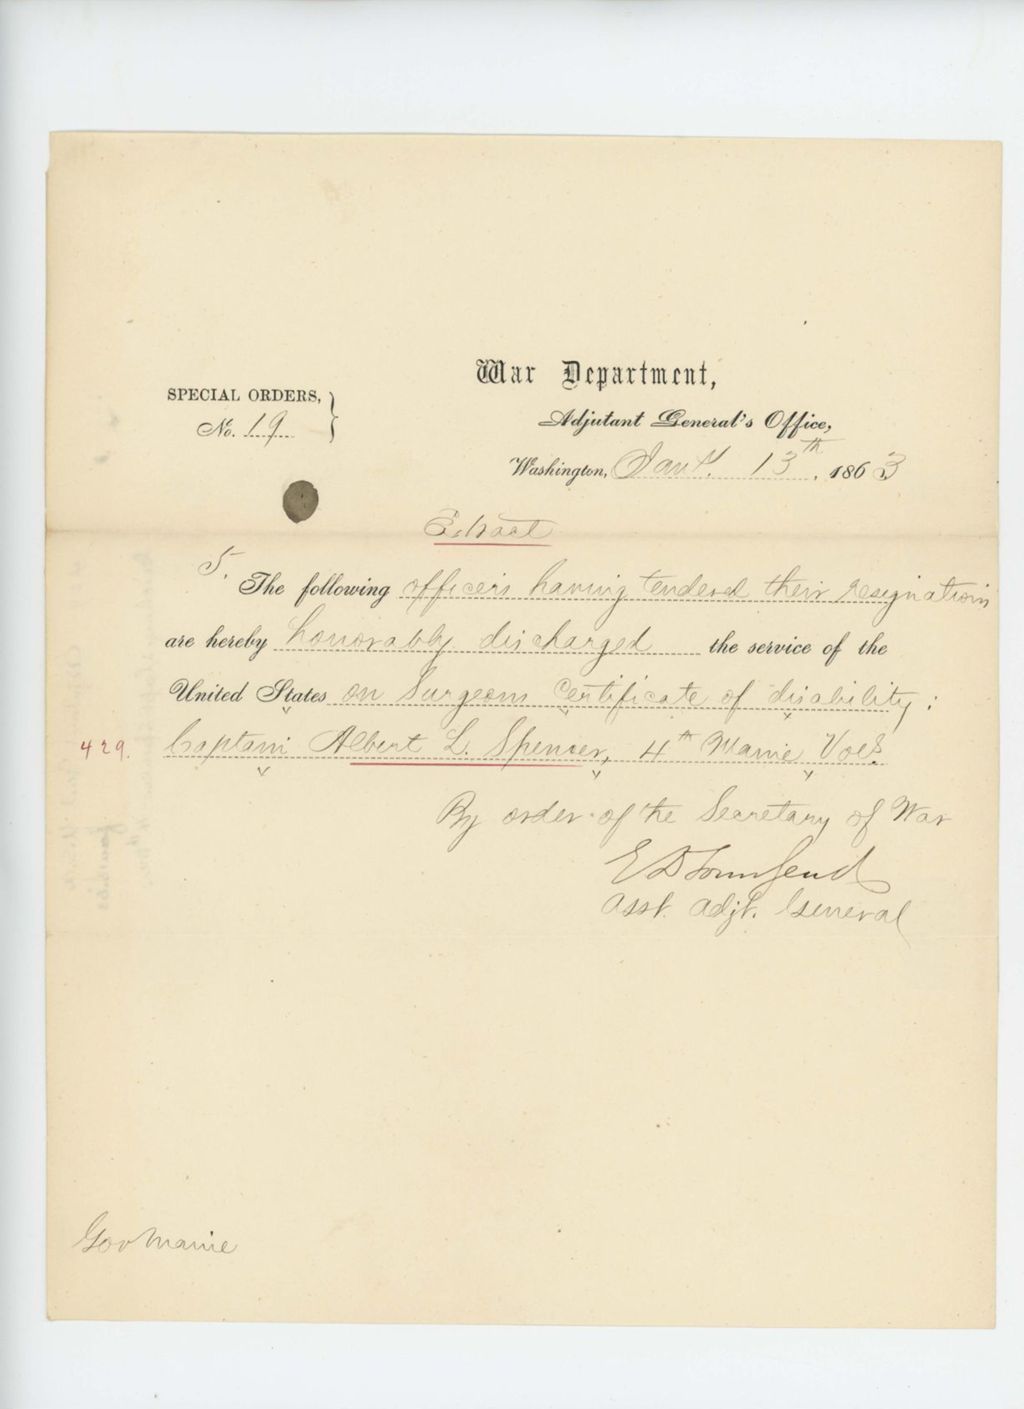 War Department,
SPECIAL ORDERS, }
No. 19
Adjutant General's Office,
Washington, Jany. 13th, 1863
Extract
5. The following officers having tendered their resignations
are hereby honorably discharged the service of the
United States on Surgeons Certificate of disability:
429. Captain Albert L. Spencer, 4th Maine Vols.
By order of the Secretary of War
E D Townsend
Asst. Adjt. General
Gov Maine